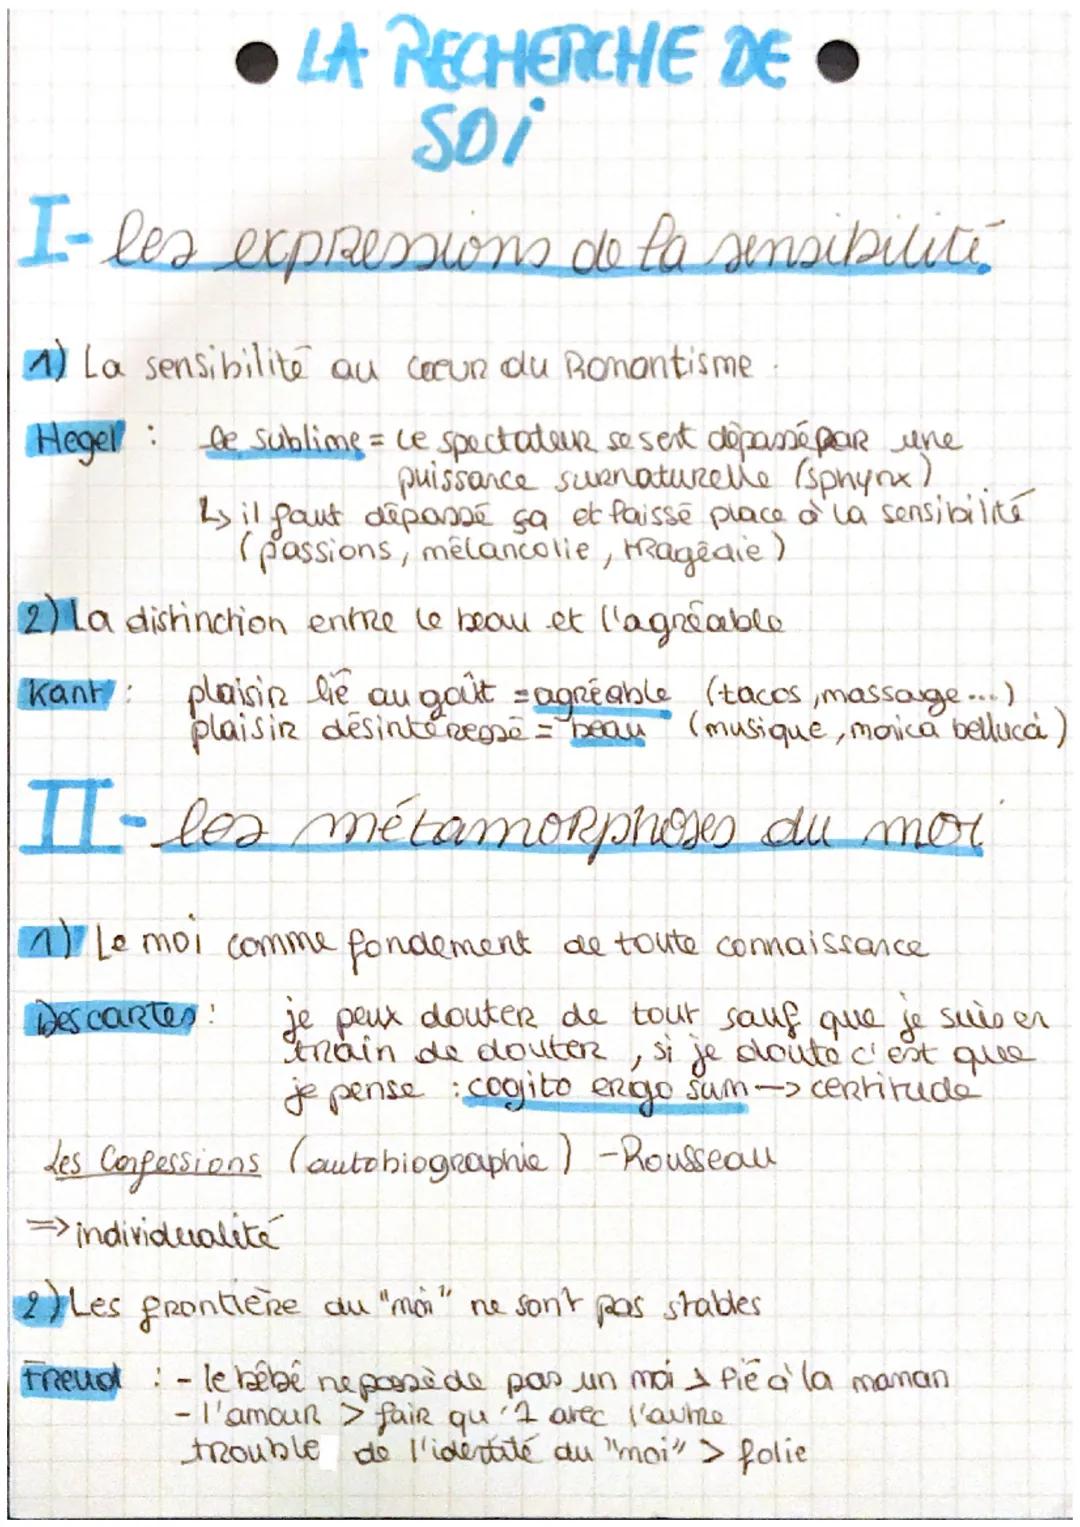 LA RECHERCHE DE
SOi
I- les expressions de la sensibilité.
1) La sensibilité au cœur du Romantisme.
Hegel : le sublime = le spectateur se sent dépassé par une
puissance surnaturelle (sphynx)
↳ il faut dépassé ça et laissé place à la sensibilité
(passions, mélancolie, tragédie)
2) La distinction entre le beau et l'agréable
Kant : plaisir lié au goût = agréable (tacos, massage...)
plaisir désintéressé = beau (musique, monica bellucci)
II- les métamorphoses du moi
1) Le moi comme fondement de toute connaissance
Descartes : je peux douter de tout sauf que je suis en
train de douter, si je doute c'est que
je pense : cogito ergo sum -> certitude
Les Confessions (autobiographie) - Rousseau
=> individualité
2) Les frontière du "moi" ne sont pas stables
Freud : - le bébé ne possède pas un moi > lié à la maman
- l'amour > fair qu'1 avec l'autre
trouble de l'identité du "moi" > folie